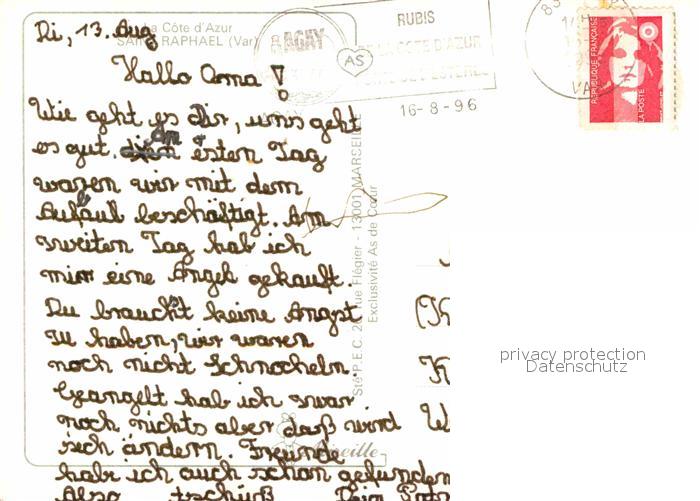 La Côte d'Azur
SAINT RAPHAEL (Var)
Di, 13. Aug
Hallo Oma!
Wie geht es dir, uns geht
es gut. Am ersten Tag
waren wir mit dem
Aufbaul beschäftigt. Am
zweiten Tag hab ich
mir eine Angel gekauft.
Du brauchst keine Angst
zu haben, wir waren
noch nicht Schnocheln.
Geangelt hab ich zwar
noch nichts aber daß wird
sich ändern. Freunde
hab ich auch schon gefunden
Also tschüß Dein
AGAY
RUBIS
DE LA COTE D'AZUR
AS
16-8-96
83
VA
REPUBLIQUE FRANÇAISE
LA POSTE
Sté P.E.C. 26 rue Flégier - 13001 MARSEILLE
Exclusivité As de Cœur
Mireille
privacy protection
Datenschutz